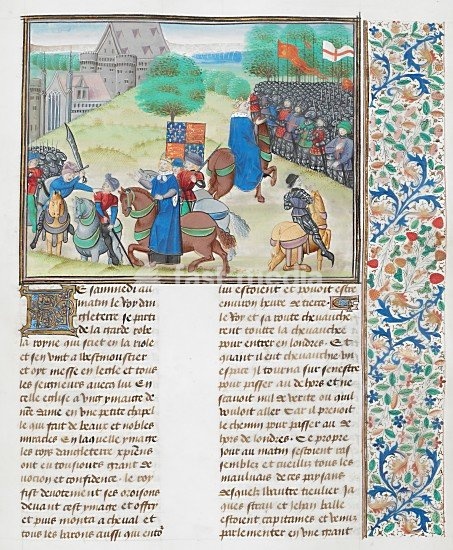 Le samuedi au
matin le Roy dan
gleterre se parti
de la garde robe
la royne qui siet en la riole
et sen vint a Westmoustier
et oyt messe en leglise et tous
les seigneurs auecq lui En
celle eglise a vng ymage de
nre dame en vne petite chapel
le qui fait de beaux et nobles
miracles En laquelle ymage
les roys dangleterre
ont eu tousiours grant de
uocion et confidence. le roy
fist deuotement ses oroisons
deuant cest ymage et offry
et puis monta a cheual et
tous les barons aussi qui
lui estoient et pouoit estre
enuiron heure de tierce
le Roy et sa route cheuauche
rent toute la cheuauchee
pour entrer en londres. Et
quant il eut cheuauchie vn
espace il tourna sur senestre
pour passer au dehors et ne
scauoit nul de verite ou quil
vouloit aller Car il prenoit
le chemin pour passer au de
hors de londres. Ce propre
iour au matin sestoient ras
semblez et tous les
mauluais de ces paysans
desquelz wautre tieulier Ja
ques strau et Jehan balle
estoient capitaines et venus
parlementer en vne grant